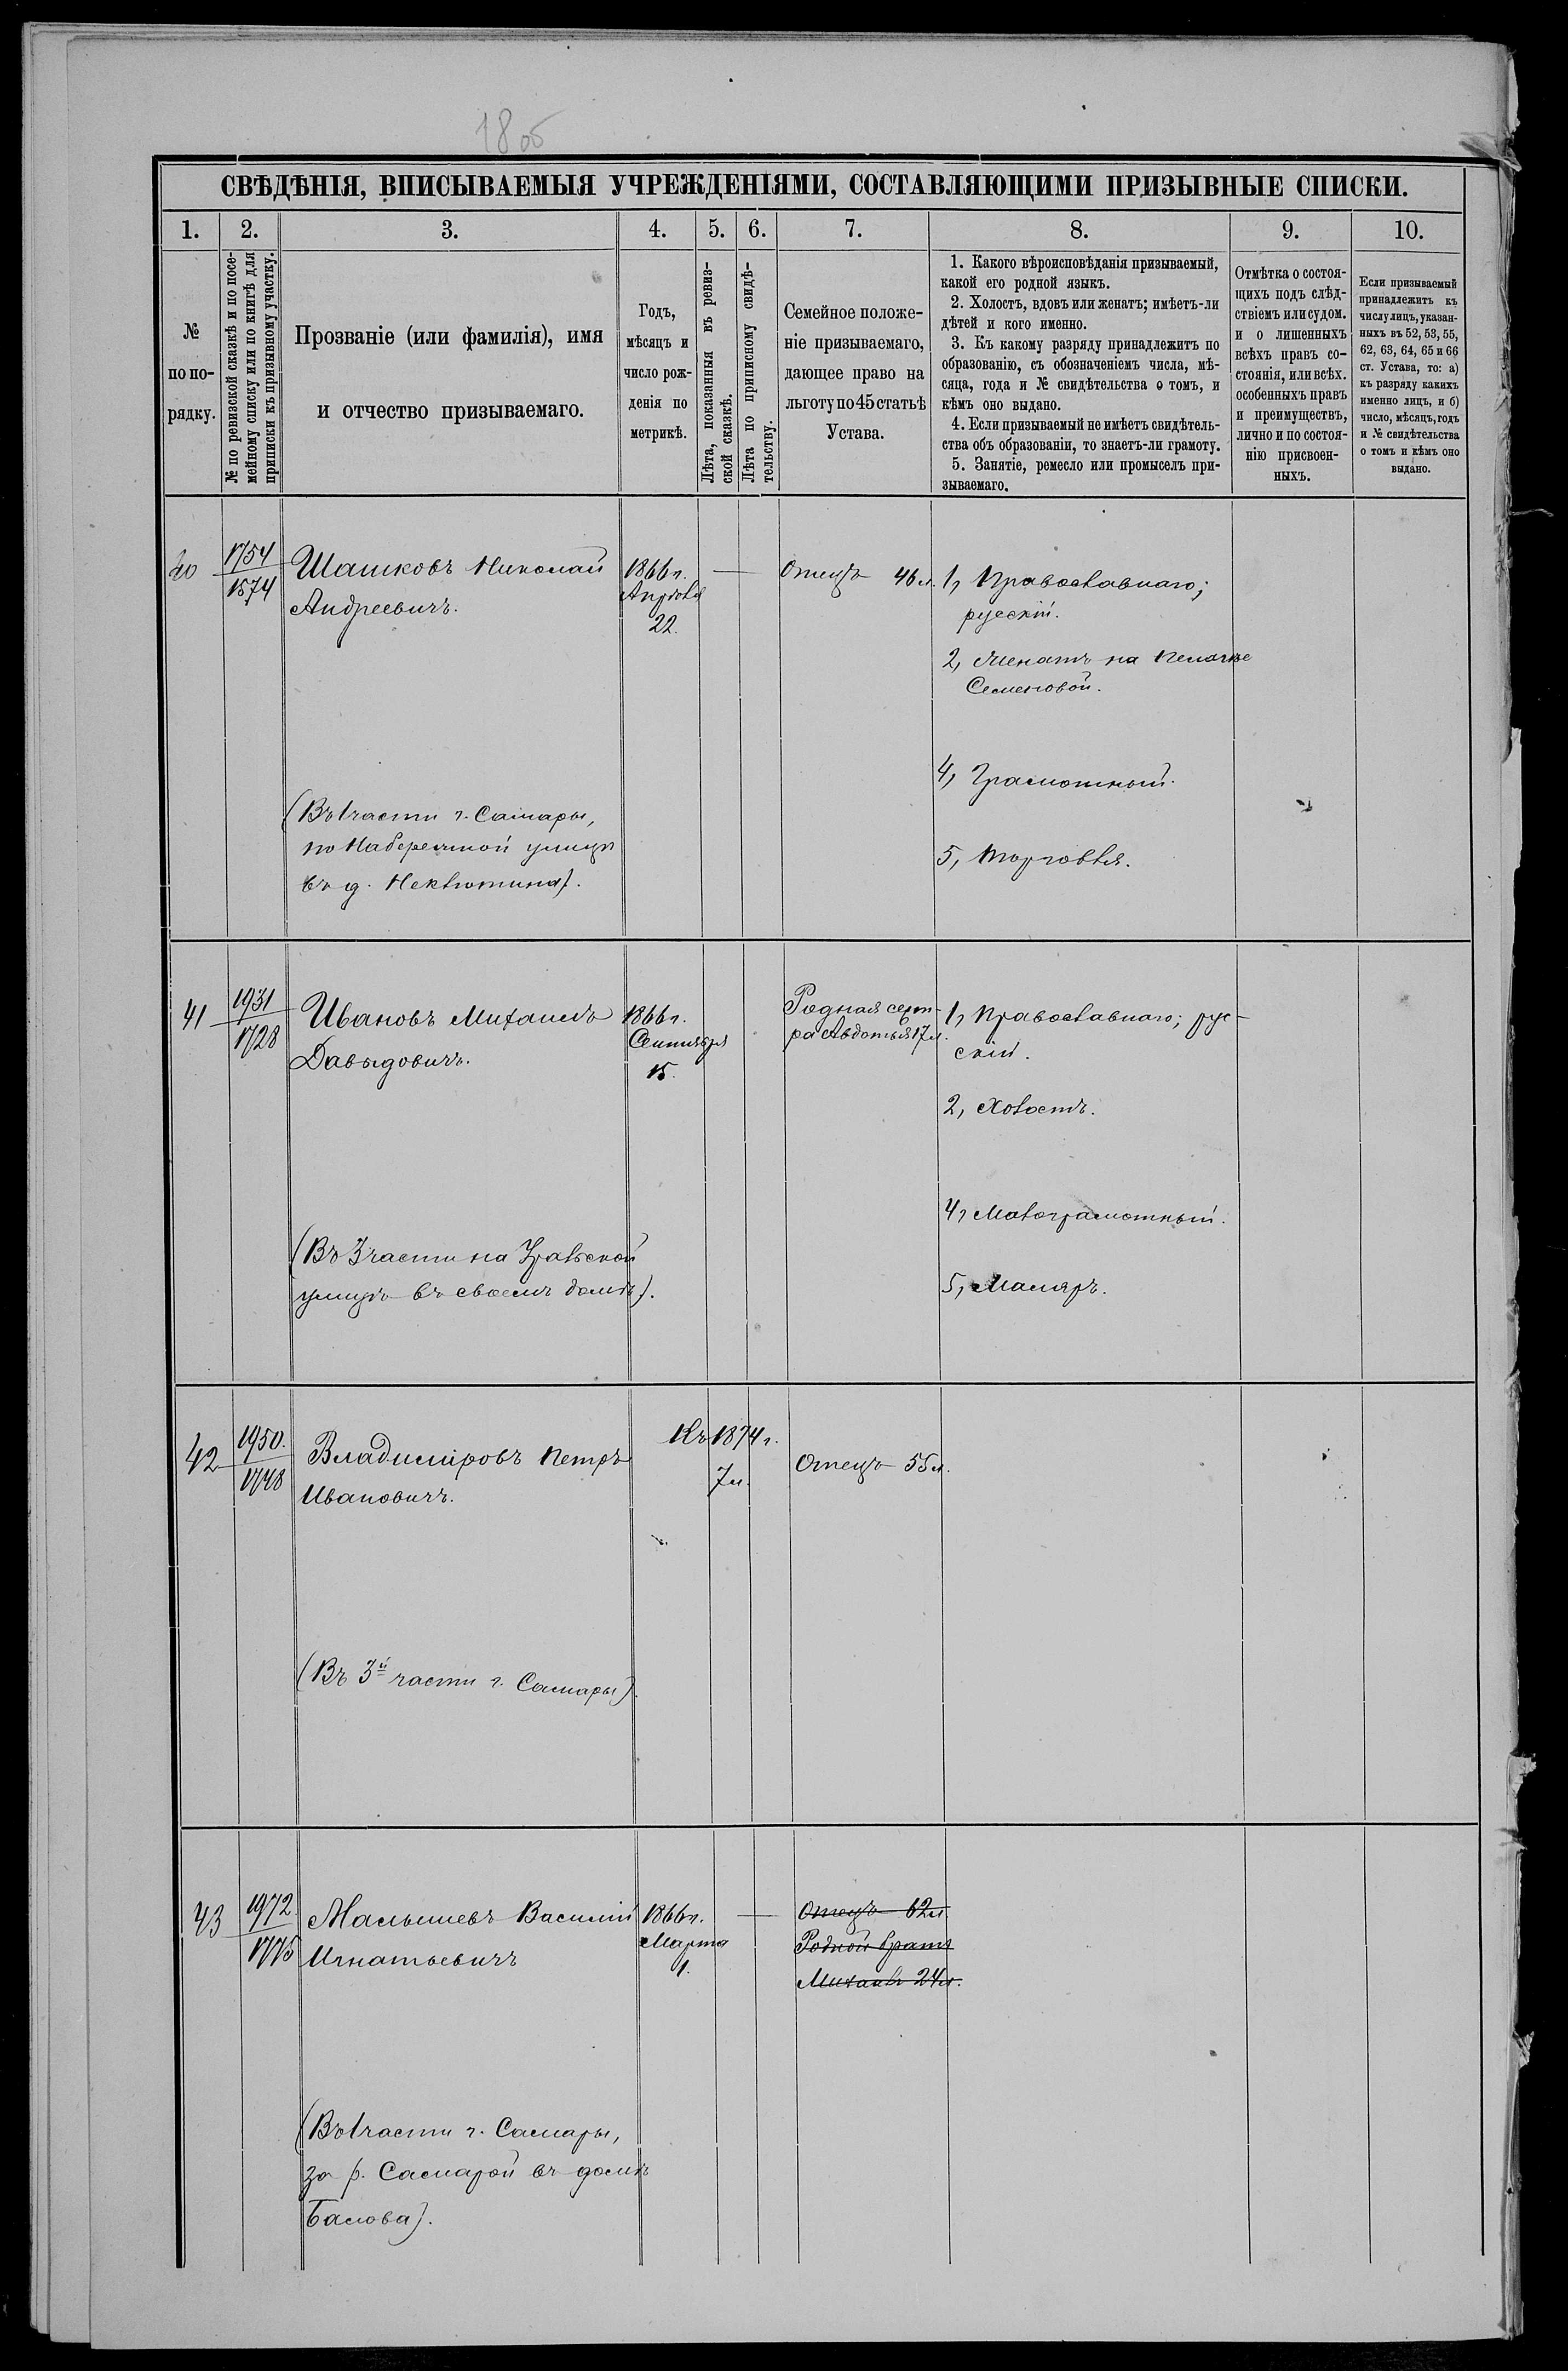 18об
СВѢДѢНІЯ, ВПИСЫВАЕМЫЯ УЧРЕЖДЕНІЯМИ, СОСТАВЛЯЮЩИМИ ПРИЗЫВНЫЕ СПИСКИ.
1.
2.
3.
4.
5.
6.
7.
8.
9.
10.
№
по по-
рядку.
№ по ревизской сказкѣ и по посе-
мейному списку или по книгѣ для
приписки къ призывному участку.
Прозваніе (или фамилія), имя
и отчество призываемаго.
Годъ,
мѣсяцъ и
число рож-
денія по
метрикѣ.
Лѣта, показанныя въ ревиз-
ской сказкѣ.
Лѣта по приписному свидѣ-
тельству.
Семейное положе-
ніе призываемаго,
дающее право на
льготу по 45 статьѣ
Устава.
1. Какого вѣроисповѣданія призываемый,
какой его родной языкъ.
2. Холостъ, вдовъ или женатъ; имѣетъ-ли
дѣтей и кого именно.
3. Къ какому разряду принадлежитъ по
образованію, съ обозначеніемъ числа, мѣ-
сяца, года и № свидѣтельства о томъ, и
кѣмъ оно выдано.
4. Если призываемый не имѣетъ свидѣтель-
ства объ образованіи, то знаетъ-ли грамоту.
5. Занятіе, ремесло или промыселъ при-
зываемаго.
Отмѣтка о состоя-
щихъ подъ слѣд-
ствіемъ или судом.
и о лишенныхъ
всѣхъ правъ со-
стоянія, или всѣх.
особенныхъ правъ
и преимуществъ,
лично и по состоя-
нію присвоен-
ныхъ.
Если призываемый
принадлежитъ къ
числу лицъ, указан-
ныхъ въ 52, 53, 55,
62, 63, 64, 65 и 66
ст. Устава, то: а)
къ разряду какихъ
именно лицъ, и б)
число, мѣсяцъ, годъ
и № свидѣтельства
о томъ и кѣмъ оно
выдано.
40
1754
1574
Шашковъ Николай
Андреевичъ.
(Въ 1 части г. Самары,
по Набережной улицѣ
въ д. Неклютина).
1866 г.
Апрѣля
22.
Отецъ 46 л.
1, Православнаго;
русскій.
2, Женатъ на Пелагѣе
Семеновой.
4, Грамотный.
5, Торговля.
41
1931
1728
Ивановъ Михаилъ
Давыдовичъ.
(Въ 3 части на Уральской
улицѣ въ своемъ домѣ).
1866 г.
Сентября
15.
Родная сест-
ра Авдотья 17 л.
1, Православнаго; рус-
скій.
2, Холостъ.
4, Малограмотный.
5, Маляръ.
42
1950.
1748
Владиміровъ Петръ
Ивановичъ.
(Въ 3й части г. Самары).
Къ 1874 г.
7 л.
Отецъ 55 л.
43
1972
1775
Малышевъ Василий
Игнатьевичъ
(Въ 1 части г. Самары,
за р. Самарой въ домѣ
Балова).
1866 г.
Марта
1.
Отецъ 62 л.
Родной братъ
Михаилъ 24 л.